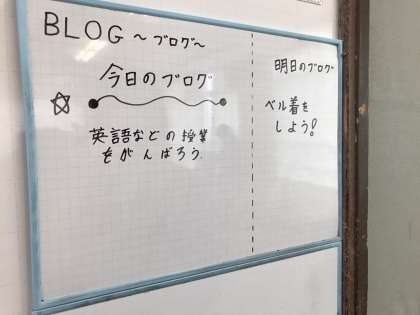 BLOG ～ブログ～
今日のブログ
英語などの授業
をがんばろう
明日のブログ
ベル着を
しよう!